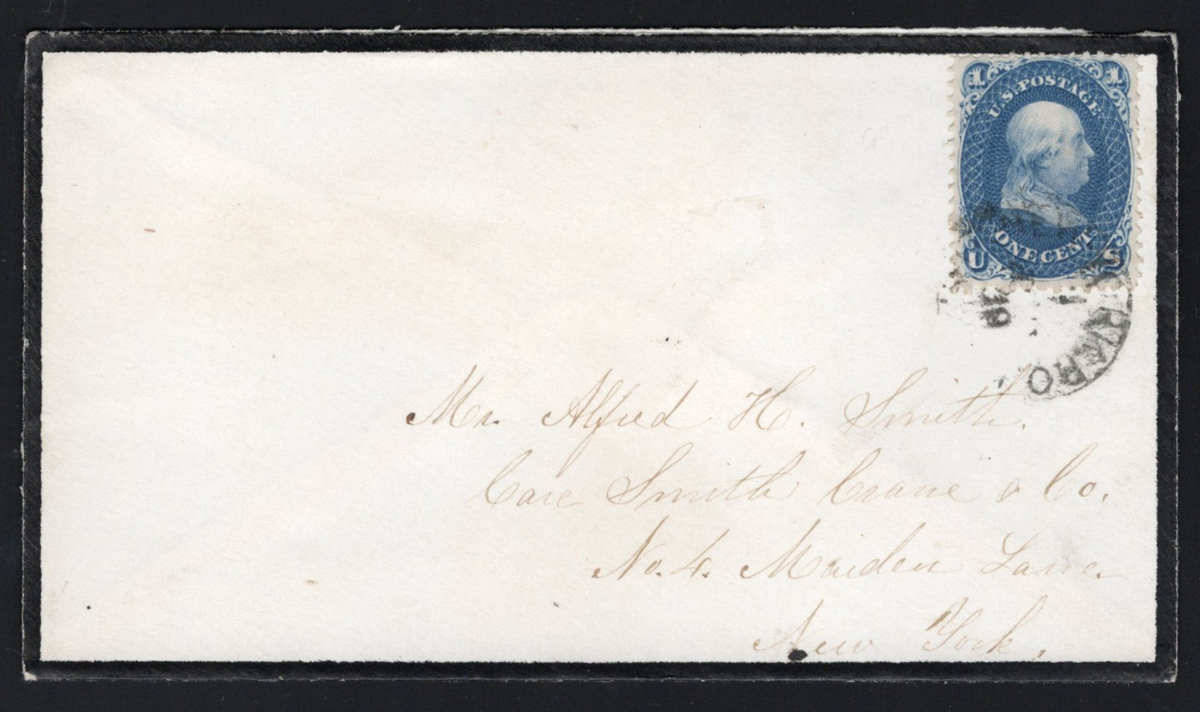 1 1
U.S. POSTAGE
ONE CENT.
U S
19
Mr. Alfred H. Smith.
Care Smith Crane & Co.
No. 4. Maiden Lane.
New York,